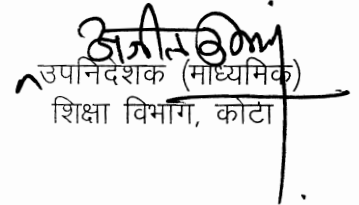 उपनिदेशक (माध्यमिक)
शिक्षा विभाग, कोटा